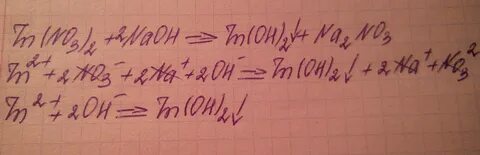 Zn(NO₃)₂ + 2NaOH ⇒ Zn(OH)₂↓ + Na₂NO₃
Zn²⁺ + 2NO₃⁻ + 2Na⁺ + 2OH⁻ ⇒ Zn(OH)₂↓ + 2Na⁺ + NO₃²
Zn²⁺ + 2OH⁻ ⇒ Zn(OH)₂↓